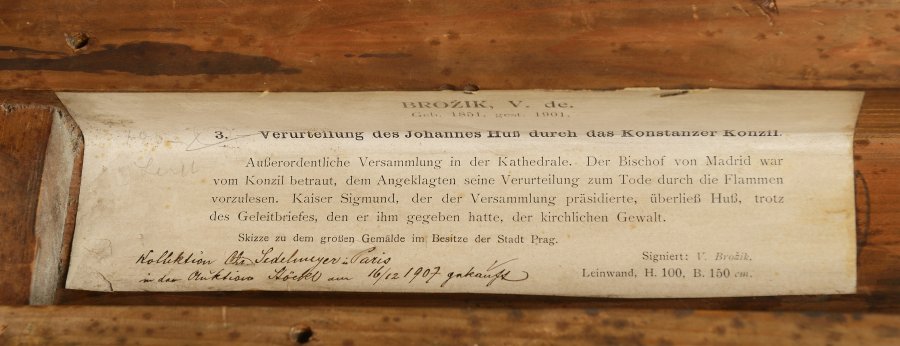 BROŽIK, V. de.
Geb. 1851, gest. 1901.
3. Verurteilung des Johannes Huß durch das Konstanzer Konzil.
Außerordentliche Versammlung in der Kathedrale. Der Bischof von Madrid war
vom Konzil betraut, dem Angeklagten seine Verurteilung zum Tode durch die Flammen
vorzulesen. Kaiser Sigmund, der der Versammlung präsidierte, überließ Huß, trotz
des Geleitbriefes, den er ihm gegeben hatte, der kirchlichen Gewalt.
Skizze zu dem großen Gemälde im Besitze der Stadt Prag.
Signiert: V. Brožik.
Leinwand, H. 100, B. 150 cm.
Kollektion Sedelmeyer-Paris
in der Auktion Stöckl am 16/12 1907 gekauft